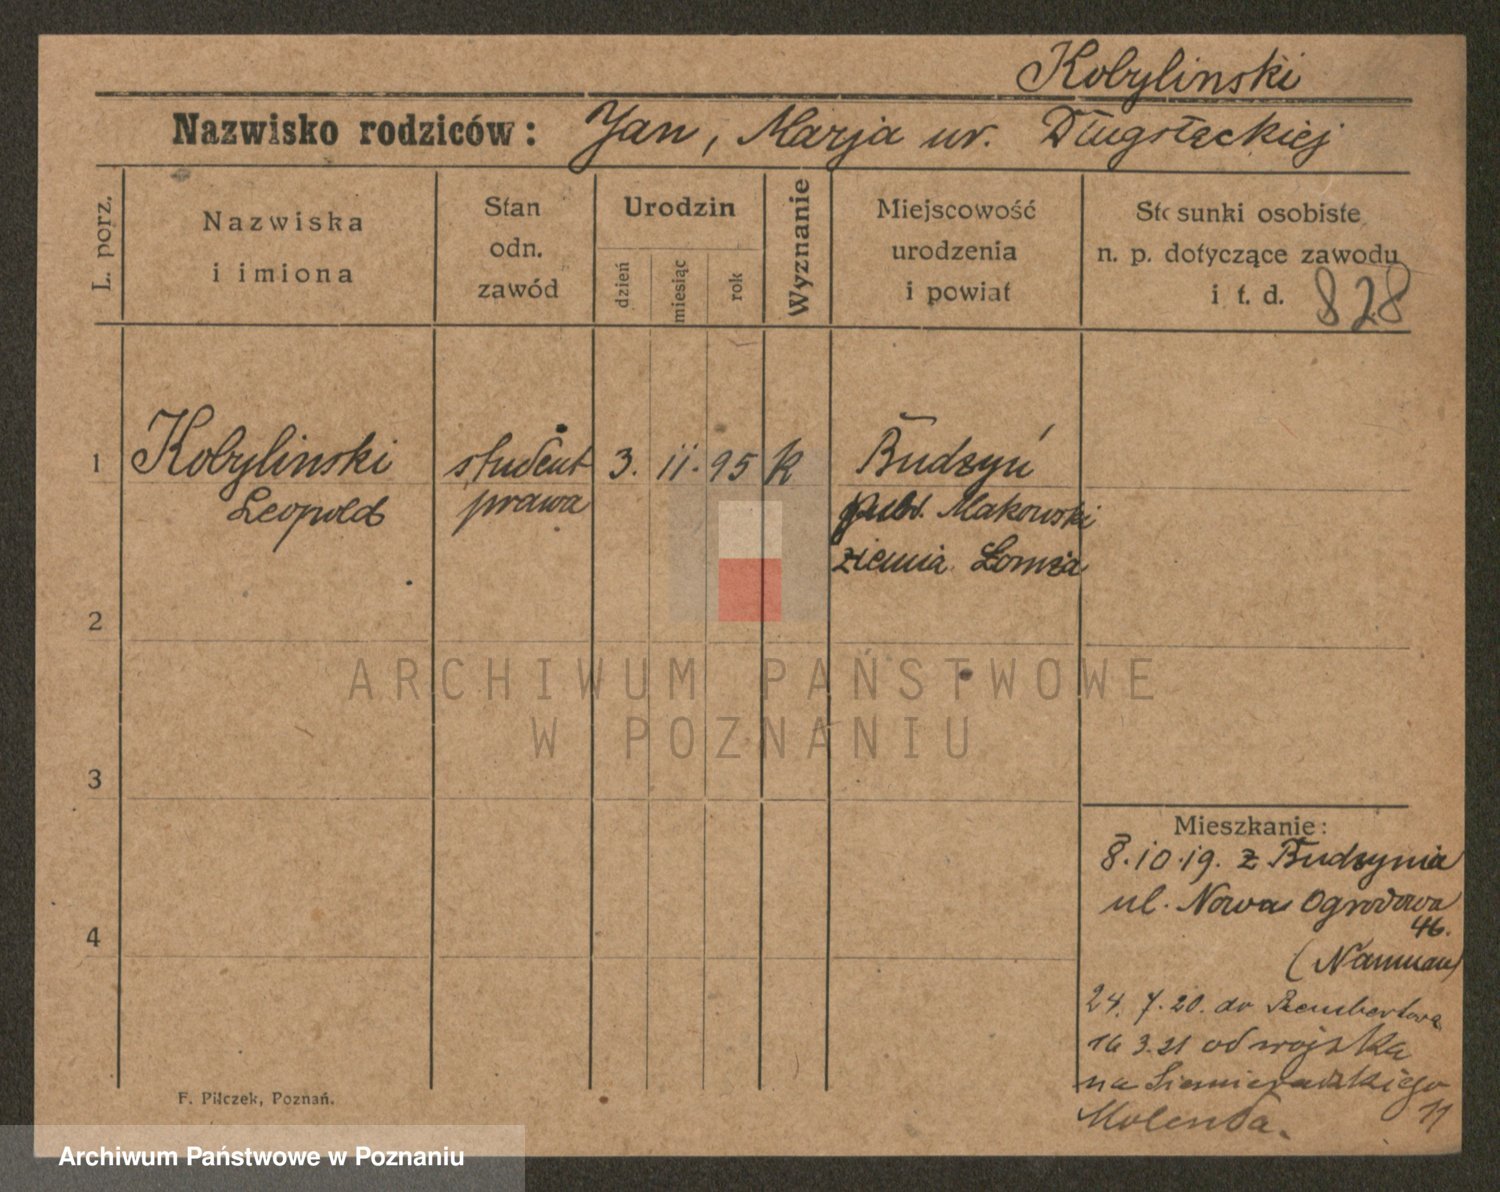 Kobylinski
Nazwisko rodziców: Jan, Marja ur. Długołęckiej
L. porz.
Nazwiska
i imiona
Stan
odn.
zawód
Urodzin
dzień
miesiąc
rok
Wyznanie
Miejscowość
urodzenia
i powiat
Stosunki osobiste
n. p. dotyczące zawodu
i t. d.
828
1 Kobylinski student 3. 11. 95 k Budzyń
Leopold prawa Makowski
ziemia Łomża
2
3
4
ARCHIWUM PAŃSTWOWE
W POZNANIU
Mieszkanie:
8.10.19. z Budzynia
ul. Nowa Ogrodowa
46.
(Nauman)
24. 7. 20. do Rembertowa
16 3.21 od wojska
na Siemieradzkiego
11
Molenda.
F. Pilczek, Poznań.
Archiwum Państwowe w Poznaniu